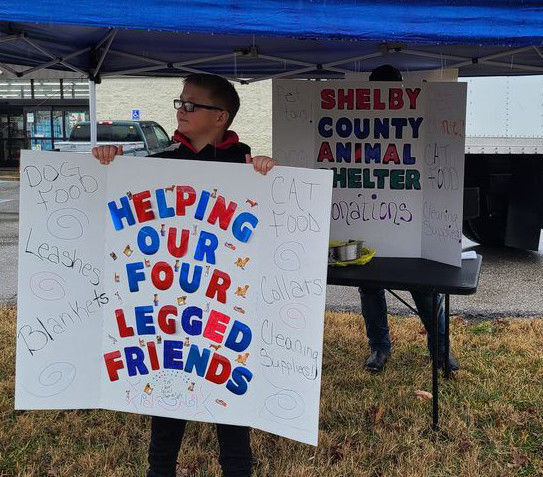 DOG
FOOD
Leashes
Blankets
HELPING
OUR
FOUR
LEGGED
FRIENDS
CAT
FOOD
Collars
Cleaning
Supplies!!
Pet
toys!
SHELBY
COUNTY
ANIMAL
SHELTER
Donations
CAT
FOOD
Cleaning
Supplies